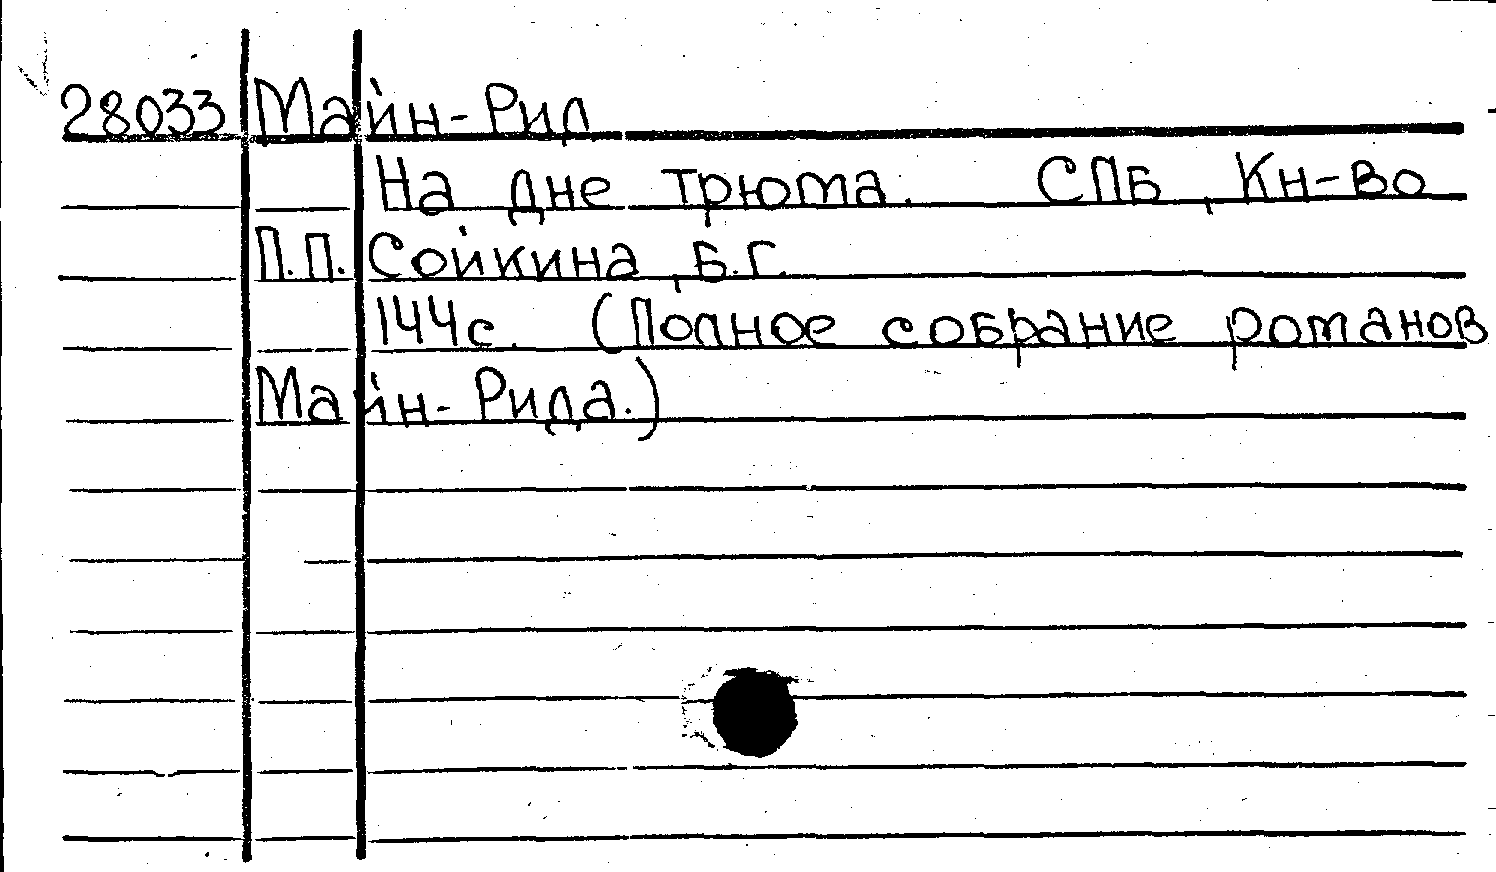 28033 Майн-Рид
На дне трюма. СПБ, Кн-во
П.П. Сойкина, Б.Г.
144с. (Полное собрание романов
Майн-Рида.)